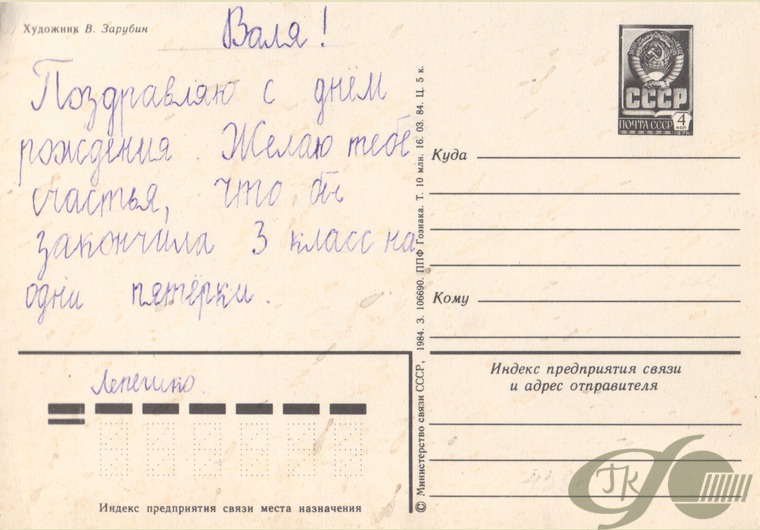 Художник В. Зарубин
Валя!
Поздравляю с днём
рождения. Желаю тебе
счастья, что бы
закончила 3 класс на
одни пятёрки.
Лепешко.
Индекс предприятия связи места назначения
© Министерство связи СССР, 1984. З. 106690. ППФ Гознака. Т. 10 млн. 16. 03. 84. Ц. 5 к.
СССР
ПОЧТА СССР 4 КОП
1976
Куда
Кому
Индекс предприятия связи
и адрес отправителя
ГК